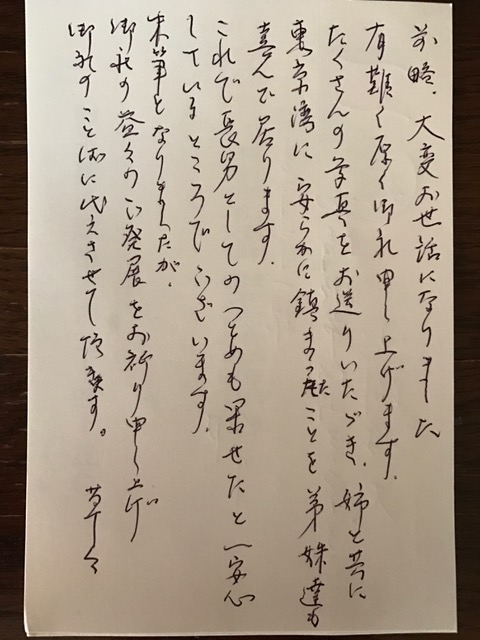 前略、大変お世話になりました
有難く厚く御礼申し上げます。
たくさんの写真をお送りいただき、姉と共に
東京湾に安らかに鎮まったことを弟妹達も
喜んで居ります。
これで長男としてのつとめも果せたと一安心
しているところでございます。
末筆となりましたが、
御社の益々のご発展をお祈り申し上げ
御礼のことばに代えさせて頂きます。 草々